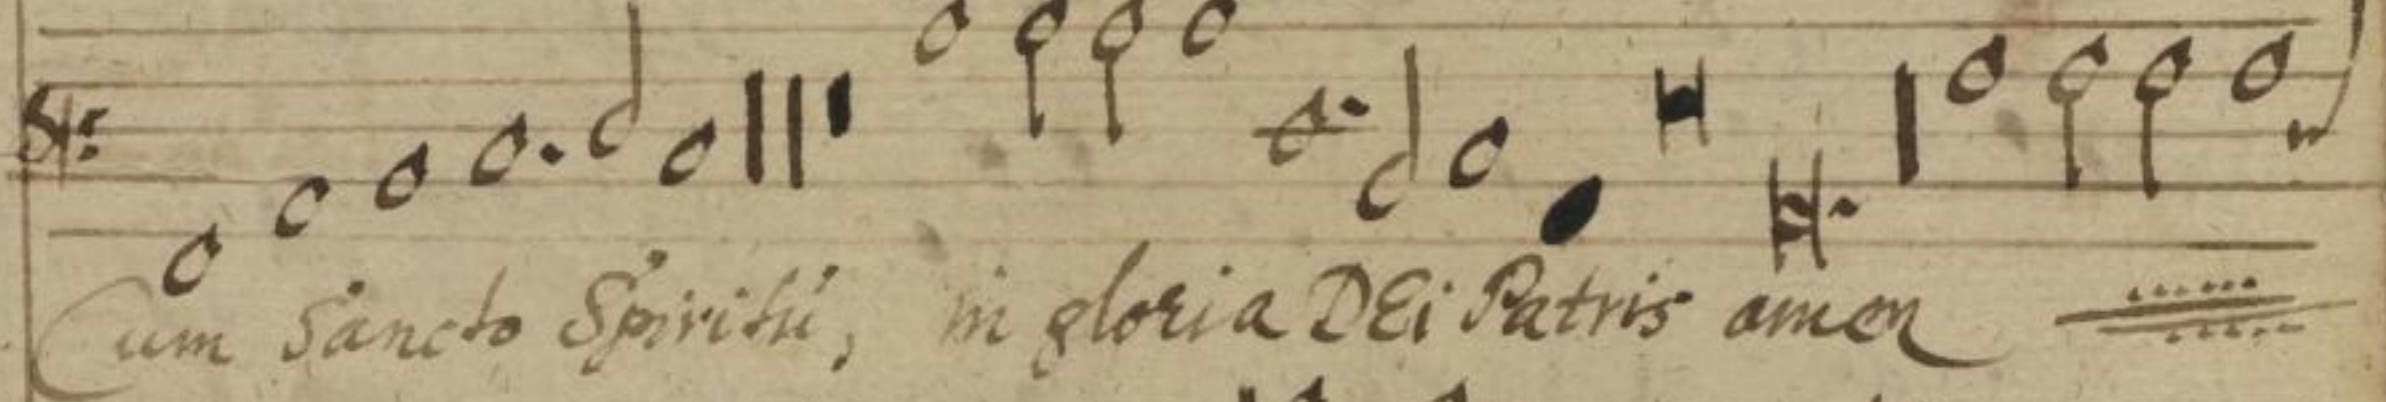 Cum Sancto Spiritu, in gloria DEi Patris amen